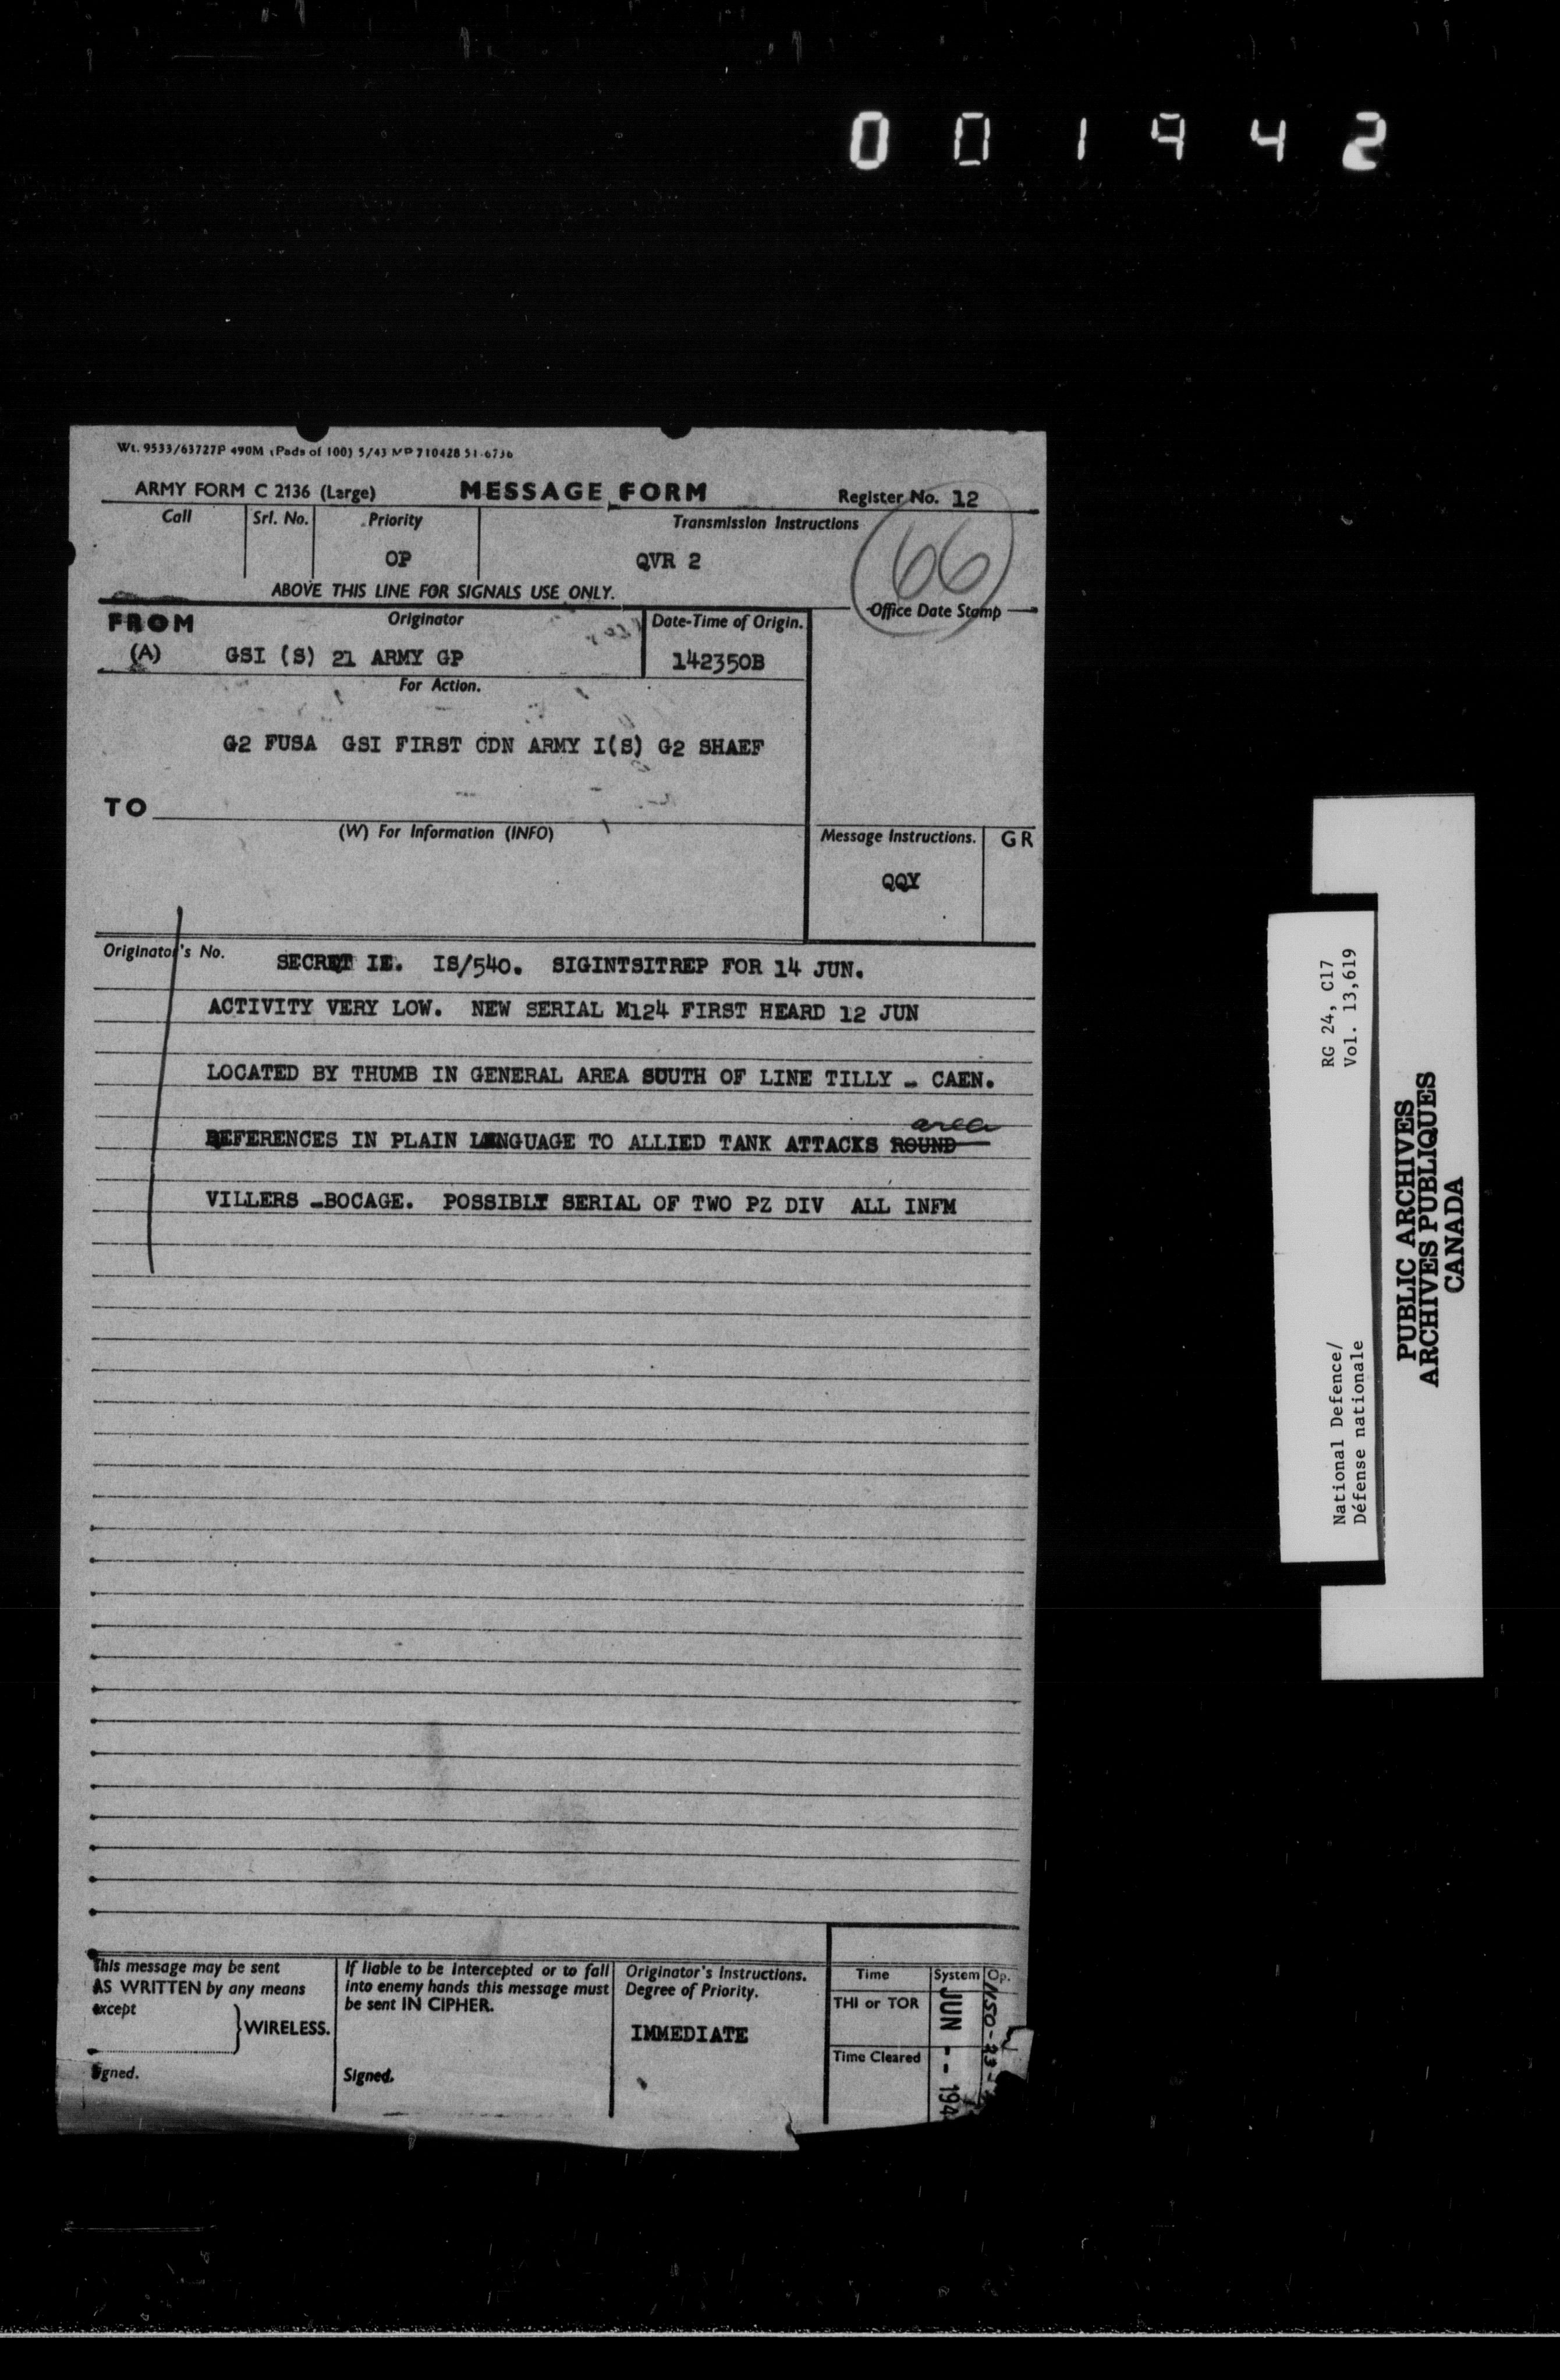 0 0 1 9 4 2
Wt. 9533/63727P 490M (Pads of 100) 5/43 MP 710428 51-6736
ARMY FORM C 2136 (Large) MESSAGE FORM Register No. 12
Call Srl. No. Priority Transmission Instructions
OP QVR 2 66
ABOVE THIS LINE FOR SIGNALS USE ONLY.
FROM Originator Date-Time of Origin. Office Date Stamp
(A) GSI (S) 21 ARMY GP 142350B
For Action.
G2 FUSA GSI FIRST CDN ARMY I(S) G2 SHAEF
TO
(W) For Information (INFO) Message Instructions. GR
QQY
Originator's No. SECRET IE. IS/540. SIGINTSITREP FOR 14 JUN.
ACTIVITY VERY LOW. NEW SERIAL M124 FIRST HEARD 12 JUN
LOCATED BY THUMB IN GENERAL AREA SOUTH OF LINE TILLY - CAEN.
area
REFERENCES IN PLAIN LANGUAGE TO ALLIED TANK ATTACKS ROUND
VILLERS -BOCAGE. POSSIBLY SERIAL OF TWO PZ DIV ALL INFM
This message may be sent
AS WRITTEN by any means
except
WIRELESS.
Signed.
If liable to be intercepted or to fall
into enemy hands this message must
be sent IN CIPHER.
Signed.
Originator's Instructions.
Degree of Priority.
IMMEDIATE
Time System Op.
THI or TOR
Time Cleared
JUN -- 194
RG 24, C17
Vol. 13,619
National Defence/
Défense nationale
PUBLIC ARCHIVES
ARCHIVES PUBLIQUES
CANADA